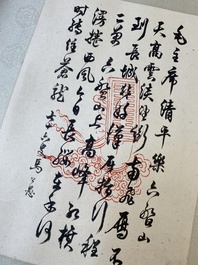 毛主席清平樂六盤山
天高雲淡望斷南飛雁不
到長城非好漢屈指行程
二萬六盤山上高峰紅旗
漫捲西風今日長纓在手何
時縛住蒼龍
馬公愚